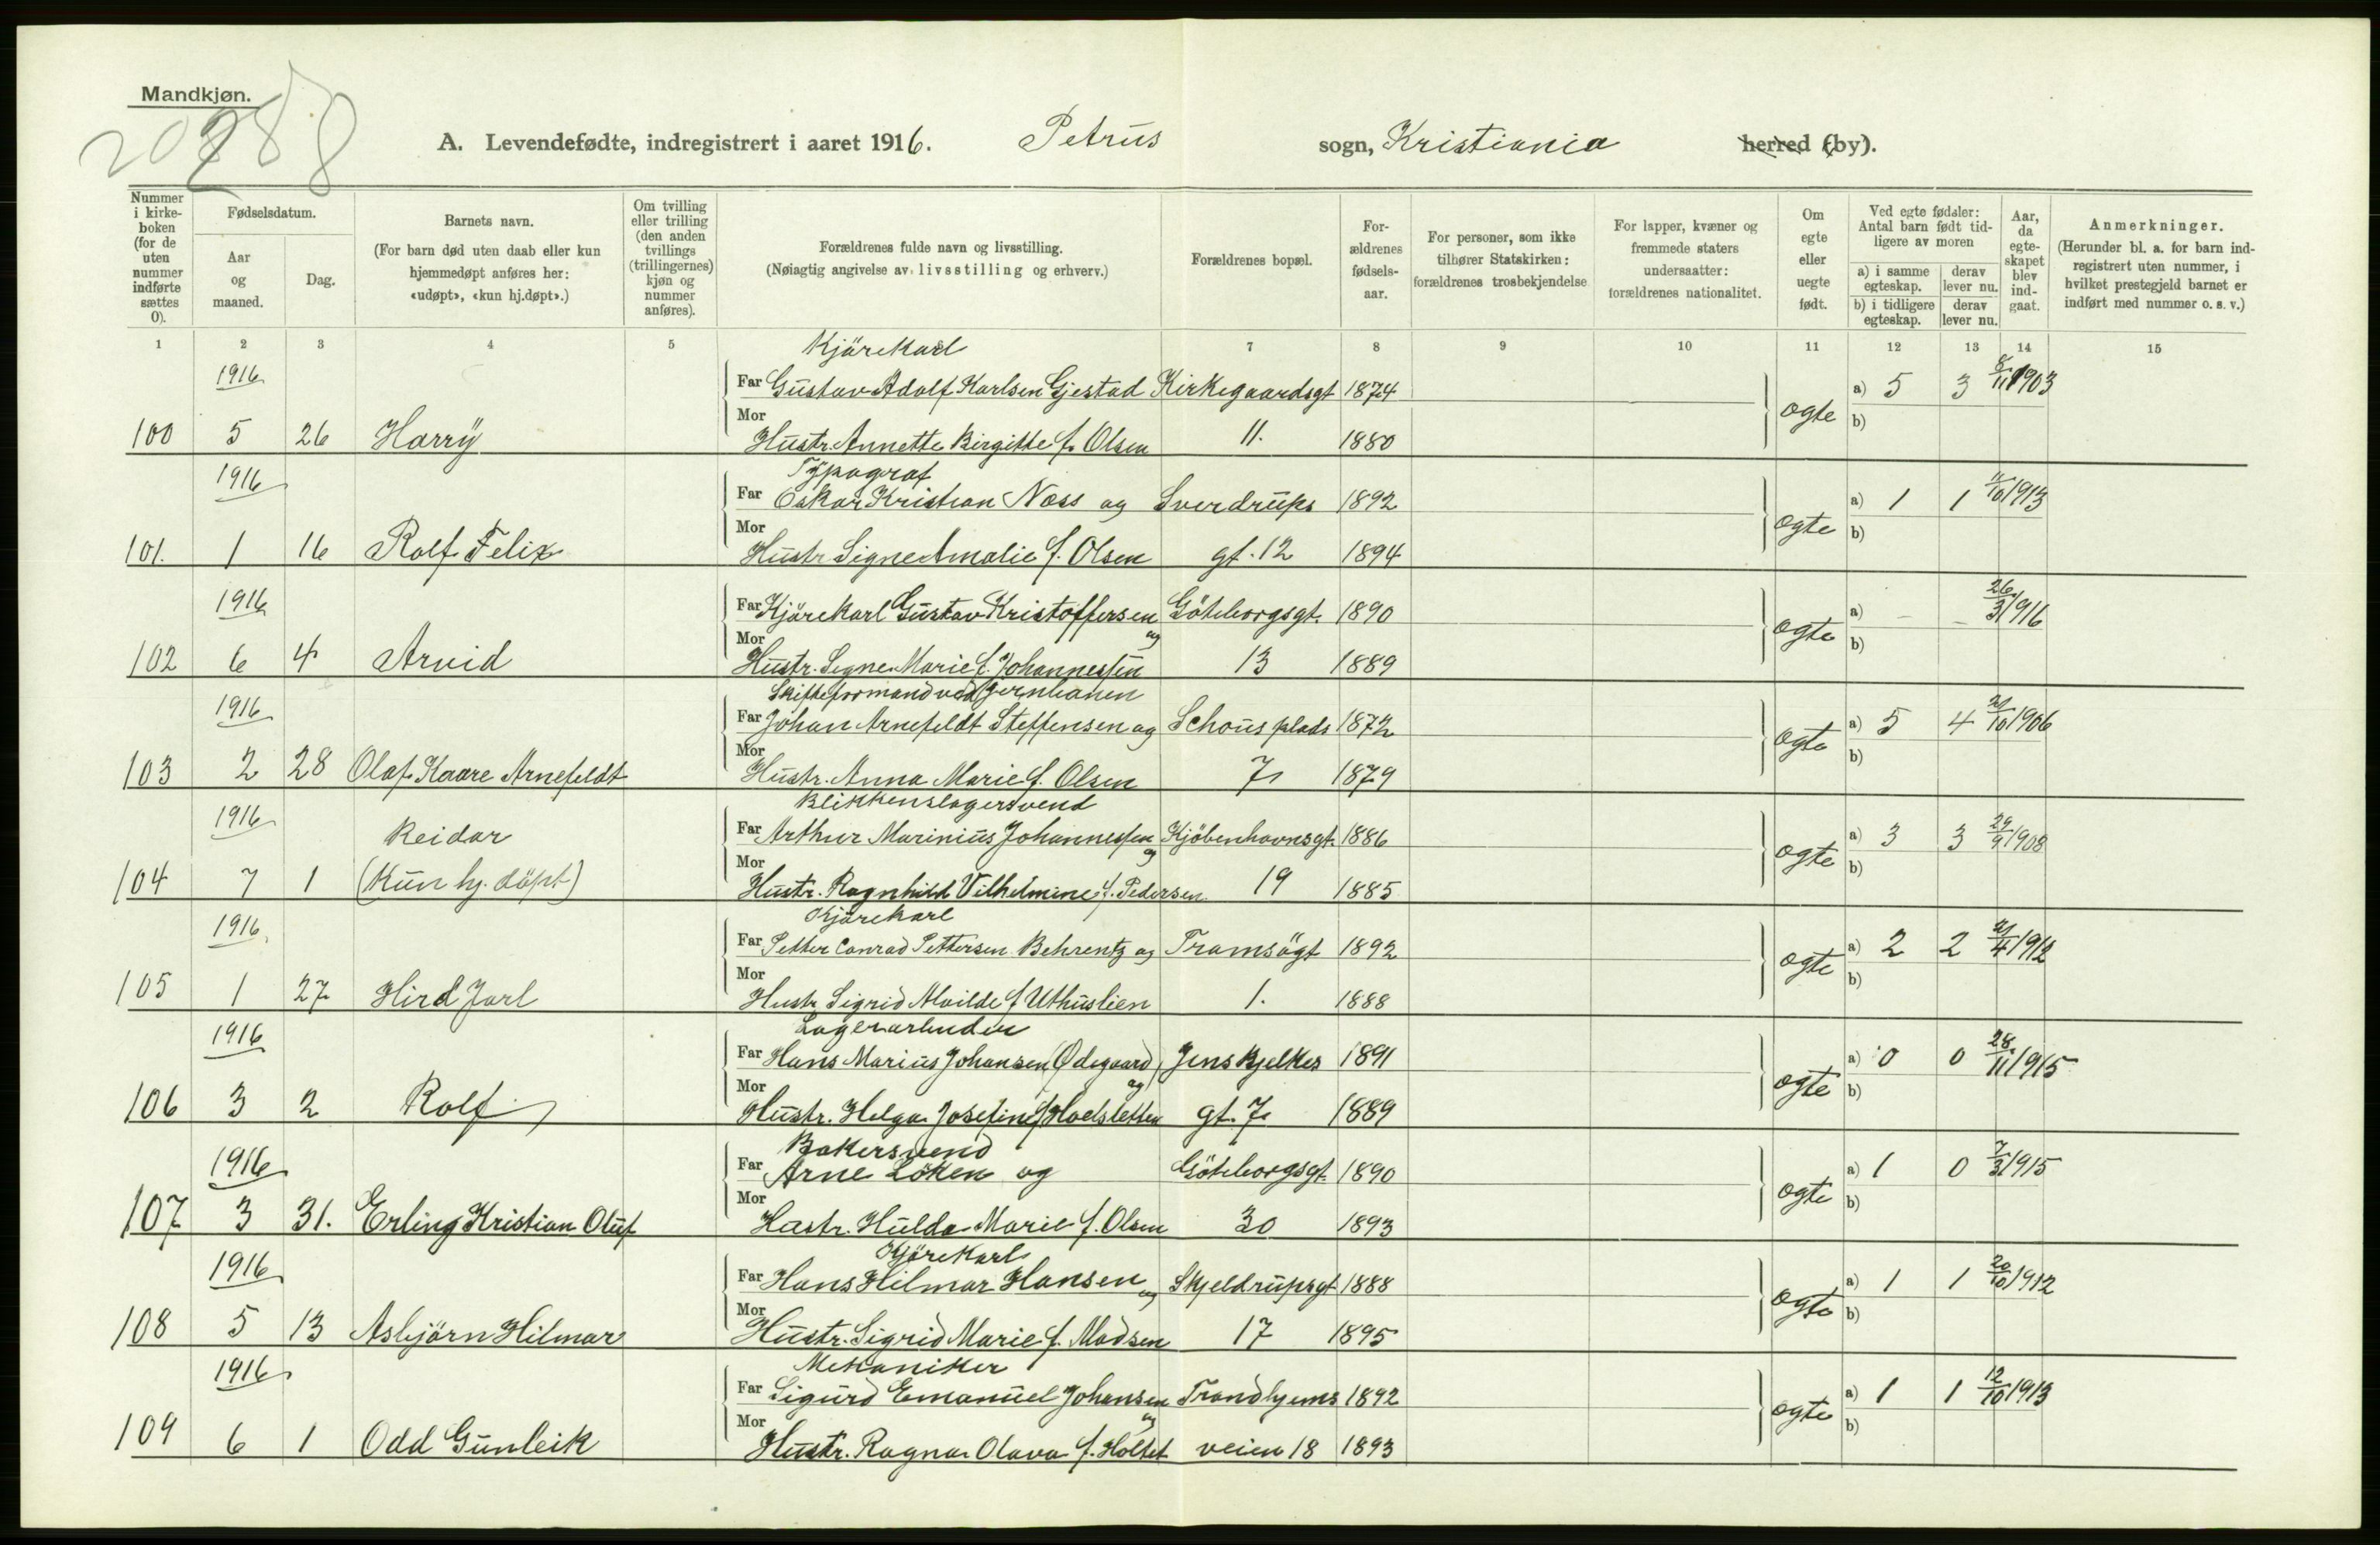 Mandkjøn.
A. Levendefødte, indregistrert i aaret 1916. Petrus sogn, Kristiania herred (by).
Nummer i kirkeboken (for de uten nummer indførte sættes 0).
Fødselsdatum.
Aar og maaned.
Dag.
Barnets navn.
(For barn død uten daab eller kun hjemmedøpt anføres her: «udøpt», «kun hj.døpt».)
Om tvilling eller trilling (den anden tvillings (trillingernes) kjøn og nummer anføres).
Forældrenes fulde navn og livsstilling.
(Nøiagtig angivelse av livsstilling og erhverv.)
Forældrenes bopæl.
Forældrenes fødselsaar.
For personer, som ikke tilhører Statskirken: forældrenes trosbekjendelse
For lapper, kvæner og fremmede staters undersaatter: forældrenes nationalitet.
Om egte eller uegte født.
Ved egte fødsler: Antal barn født tidligere av moren
a) i samme egteskap.
derav lever nu.
b) i tidligere egteskap.
derav lever nu.
Aar, da egteskapet blev indgaat.
Anmerkninger.
(Herunder bl. a. for barn indregistrert uten nummer, i hvilket prestegjeld barnet er indført med nummer o. s. v.)
1 2 3 4 5 7 8 9 10 11 12 13 14 15
Kjørekarl
1916 Far Gustav Adolf Karlsen Gjestad Kirkegaardsgt 1874 a) 5 3 8/11 1903
100 5 26 Harry Mor Hustr. Annette Birgitte f. Olsen 11. 1880 ogte b)
Typograf
1916 Far Oskar Kristian Næss og Sverdrups 1892 a) 1 1 /10 1913
101. 1 16 Rolf Felix Mor Hustr Signe Amalie f. Olsen gt. 12 1894 ogte b)
1916 Far Kjørekarl Gustav Kristoffersen og Göteborgsgt. 1890 a) - - 26/3 1916
102 6 4 Arvid Mor Hustr. Signe Marie f. Johannessen 13 1889 ogte b)
Skifteformand ved Jernbanen
1916 Far Johan Arnefeldt Steffensen og Schous plads 1872 a) 5 4 /10 1906
103 2 28 Olaf Kaare Arnefeldt Mor Hustr. Anna Marie f. Olsen 7 1879 ogte b)
Blikkenslagersvend
1916 Reidar Far Arthur Marinius Johannessen og Kjöbenhavnsgt. 1886 a) 3 3 29/9 1908
104 7 1 (Kun hj. döpt) Mor Hustr. Ragnhild Vilhelmine f. Pedersen 19 1885 ogte b)
Kjørekarl
1916 Far Petter Conrad Pettersen Behrentz og Tromsögt 1892 a) 2 2 /4 1912
105 1 27 Hird Jarl Mor Hustr Sigrid Alvilde f Uthuslien 1. 1888 ogte b)
Lagerarbeider
1916 Far Hans Marius Johansen (Ødegaard) og Jens Bjelkes 1891 a) 0 0 28/11 1915
106 3 2 Rolf Mor Hustr. Helga Josefine f Hoelsletten gt. 7 1889 ogte b)
Bakersvend
1916 Far Arne Löken og Göteborgsgt. 1890 a) 1 0 7/3 1915
107 3 31. Erling Kristian Oluf Mor Hustr. Hulda Marie f. Olsen 30 1893 ogte b)
Kjørekarl
1916 Far Hans Hilmar Hansen og Skjeldrupsgt 1888 a) 1 1 20/10 1912
108 5 13 Asbjörn Hilmar Mor Hustr. Sigrid Marie f. Madsen 17 1895 ogte b)
Mekaniker
1916 Far Sigurd Emanuel Johansen og Trondhjems 1892 a) 1 1 12/10 1913
109 6 1 Odd Gunleik Mor Hustr. Ragna Olava f. Holtet veien 18 1893 ogte b)